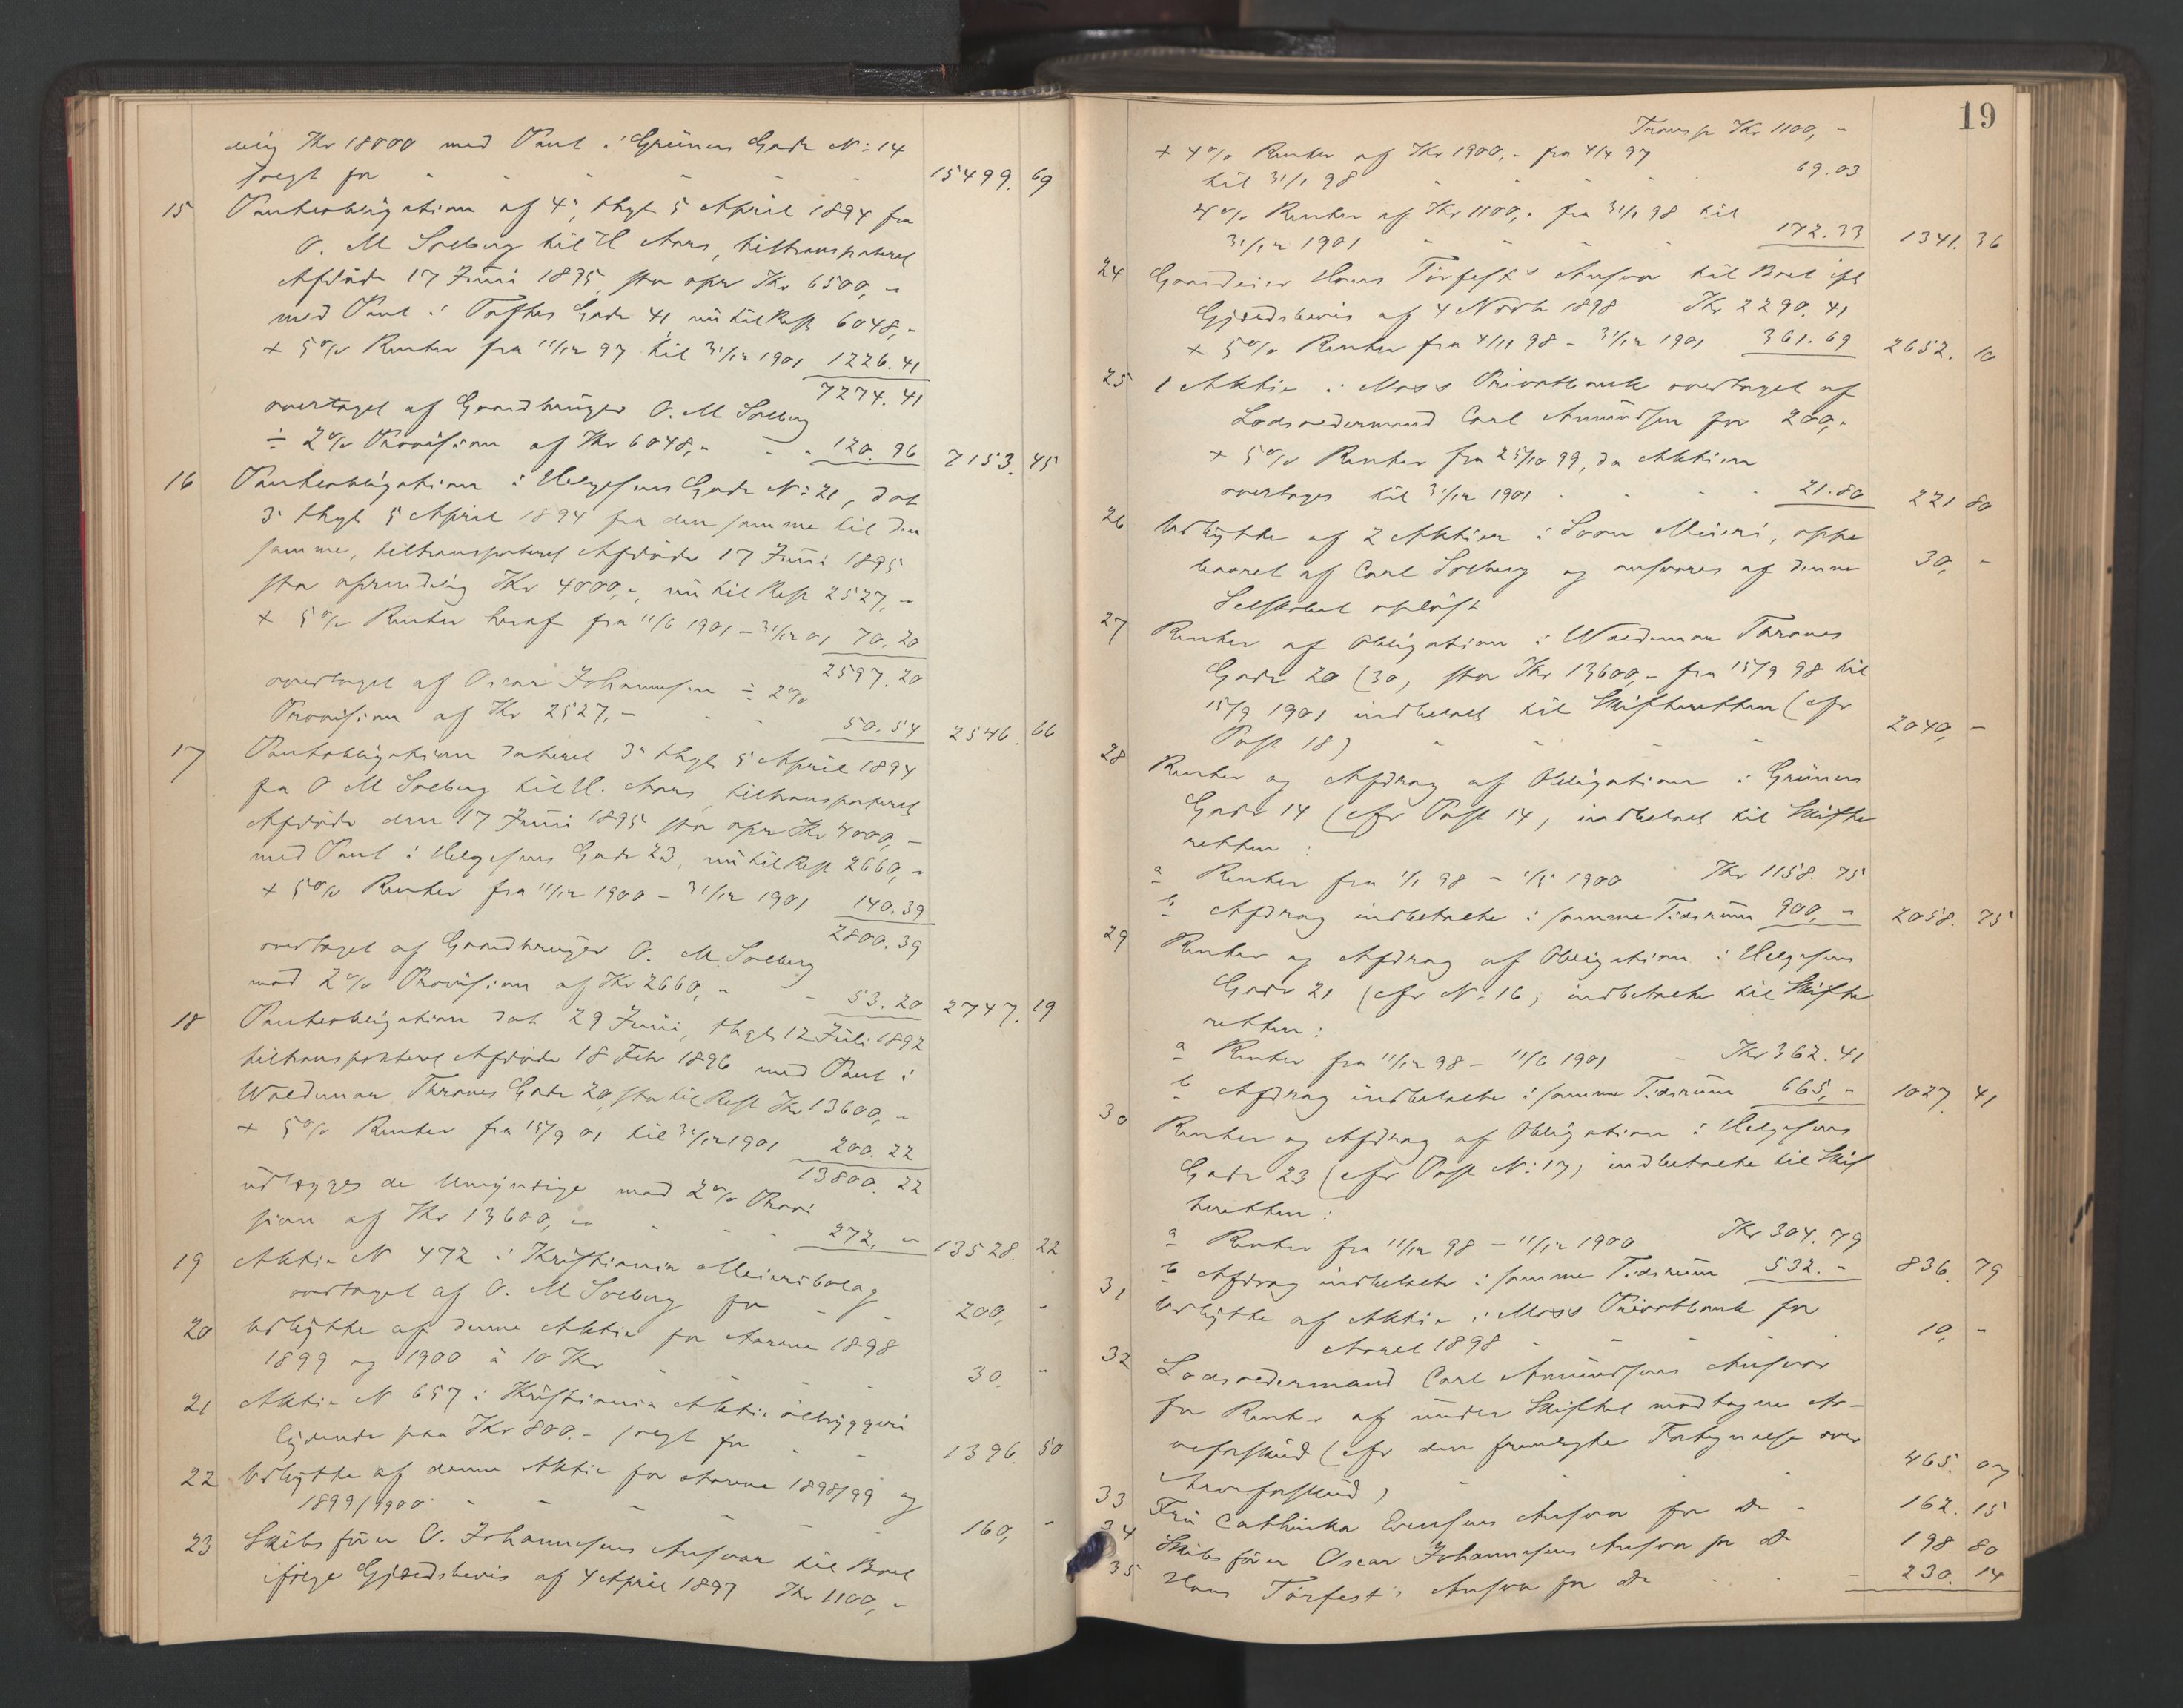 delig Kr 18000 med Pant i Grüners Gade No: 14
solgt for - - - - - - 15499. 69
15 Panteobligation af 4de, thgl 5 April 1894 fra
O. M Solberg til H Aars, tiltransporteret
Afdøde 17 Juni 1895, stor opr Kr 6500,-
med Pant i Tofthes Gade 41, nu til Rest 6048,-
+ 5% Renter fra 11/12 97 til 31/12 1901 1226.41
7274.41
overtaget af Gaardbruger O. M Solberg
÷ 2% Provision af Kr 6048,- - - 120.96 7153. 45
16 Panteobligation i Helgesens Gade No: 21, dat
3de thgl 5 April 1894 fra den samme til den
samme, tiltransporteret Afdøde 17 Juni 1895
stor oprindelig Kr 4000,-, nu til Rest 2527,-
+ 5% Renter heraf fra 11/6 1901 - 31/12 01 70.20
2597.20
overtaget af Oscar Johannesen ÷ 2%
Provision af Kr 2527,- - - 50.54 2546. 66
17 Panteobligation dateret 3de thgl 5 April 1894
fra O M Solberg til H. Aars, tiltransporteret
Afdøde den 17 Juni 1895 stor opr Kr 4000,-
med Pant i Helgesens Gade 23, nu til Rest 2660,-
+ 5% Renter fra 11/12 1900 - 31/12 1901 140.39
2800.39
overtaget af Gaardbruger O. M. Solberg
mod 2% Provision af Kr 2660,- - 53.20 2747. 19
18 Panteobligation dat 29 Juni, thgl 12 Juli 1892
tiltransporteret Afdøde 18 Febr 1896 med Pant i
Waldemar Thranes Gade 20, stor til Rest Kr 13600,-
+ 5% Renter fra 15/9 01 til 31/12 1901 200.22
13800.22
udlægges de Umyndige mod 2% Provi
sion af Kr 13600,- - - - 272,- 13528. 22
19 Aktie N 472 i Kristiania Meieribolag
overtaget af O. M Solberg for - - 200, -
20 Udbytte af denne Aktie for Aarene 1898
1899 og 1900 à 10 Kr - - - - 30. -
21 Aktie N 657 i Kristiania Aktieølbryggeri
lydende paa Kr 800.- solgt for - - 1396. 50
22 Udbytte af denne Aktie for Aarene 1898/99 og
1899/1900 - - - - - 160, -
23 Skibsfører O. Johannesens Ansvar til Boet
ifølge Gjældsbevis af 4 April 1897 Kr 1100,-
19
Transp Kr 1100,-
+ 4% Renter af Kr 1900,- fra 4/4 97
til 31/1 98 - - - - 69.03
4% Renter af Kr 1100,- fra 31/1 98 til
31/12 1901 - - - - 172.33 1341. 36
24 Gaardeier Hans Tørfest's Ansvar til Boet ifl
Gjældsbevis af 4 Novbr 1898 Kr 2290.41
+ 5% Renter fra 4/11 98 - 31/12 1901 361.69 2652. 10
25 1 Aktie i Moss Privatbank overtaget af
Lodsoldermand Carl Amundsen for 200,-
+ 5% Renter fra 25/10 99, da Aktien
overtages til 31/12 1901 - - - 21.80 221 80
26 Udbytte af 2 Aktier i Soon Meieri, oppe
baaret af Carl Solberg og ansvares af denne 30, -
Selskabet opløst
27 Renter af Obligation i Waldemar Thranes
Gade 20 (30, stor Kr 13600,- fra 15/9 98 til
15/9 1901 indbetalt til Skifteretten (cfr
Post 18) - - - - 2040, -
28 Renter og Afdrag af Obligation i Grüners
Gade 14 (cfr Post 14, indbetalt til Skifte
retten:
a Renter fra 1/1 98 - 1/5 1900 Kr 1158.75
b Afdrag indbetalte i samme Tidsrum 900,- 2058. 75
29 Renter og Afdrag af Obligation i Helgesens
Gade 21 (cfr No: 16, indbetalte til Skifte
retten:
a Renter fra 11/12 98 - 11/6 1901 - Kr 362.41
b Afdrag indbetalte i samme Tidsrum 665,- 1027. 41
30 Renter og Afdrag af Obligation i Helgesens
Gade 23 (cfr Post No: 17, indbetalte til Skif
teretten:
a Renter fra 11/12 98 - 11/12 1900 Kr 304.79
b Afdrag indbetalte i samme Tidsrum 532.- 836. 79
31 Udbytte af Aktie i Moss Privatbank for
Aaret 1898 - - - - 10, -
32 Lodsoldermand Carl Amundsens Ansvar
for Renter af under Skiftet modtagne Ar-
veforskud (cfr den fremlagte Fortegnelse over
Arveforskud) - - - - 465. 07
33 Fru Cathinka Evensens Ansvar for Do - 162. 15
34 Skibsfører Oscar Johannesens Ansvar for Do 198 80
35 Hans Tørfest's Ansvar for Do - - - 230. 14